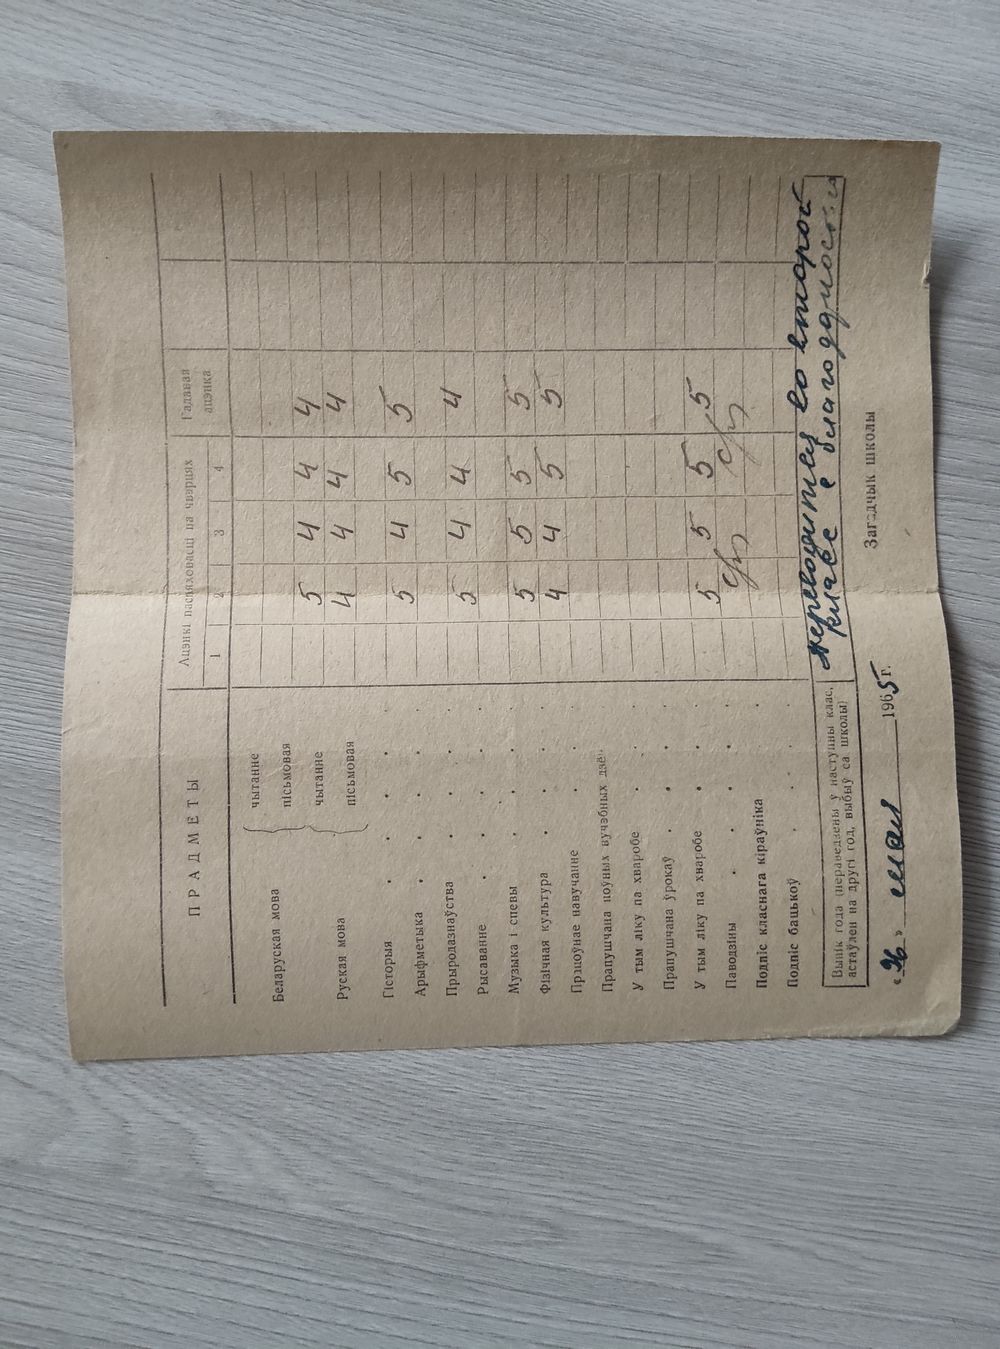 ПРАДМЕТЫ
Ацэнкі паспяховасці па чвэрцях
Гадавая ацэнка
1 2 3 4
Беларуская мова
чытанне
пісьмовая
Руская мова
чытанне 5 4 4 4
пісьмовая 4 4 4 4
Гісторыя
Арыфметыка 5 4 5 5
Прыродазнаўства
Рысаванне 5 4 4 4
Музыка і спевы 5 5 5 5
Фізічная культура 4 4 5 5
Працоўнае навучанне
Прапушчана поўных вучэбных дзён
У тым ліку па хваробе
Прапушчана ўрокаў
У тым ліку па хваробе
Паводзіны 5 5 5 5
Подпіс класнага кіраўніка
Подпіс бацькоў
Вынік года (пераведзены ў наступны клас, переводится во второй
астаўлен на другі год, выбыў са школы) класс с благодарностью
«26» мая 1965 г. Загадчык школы